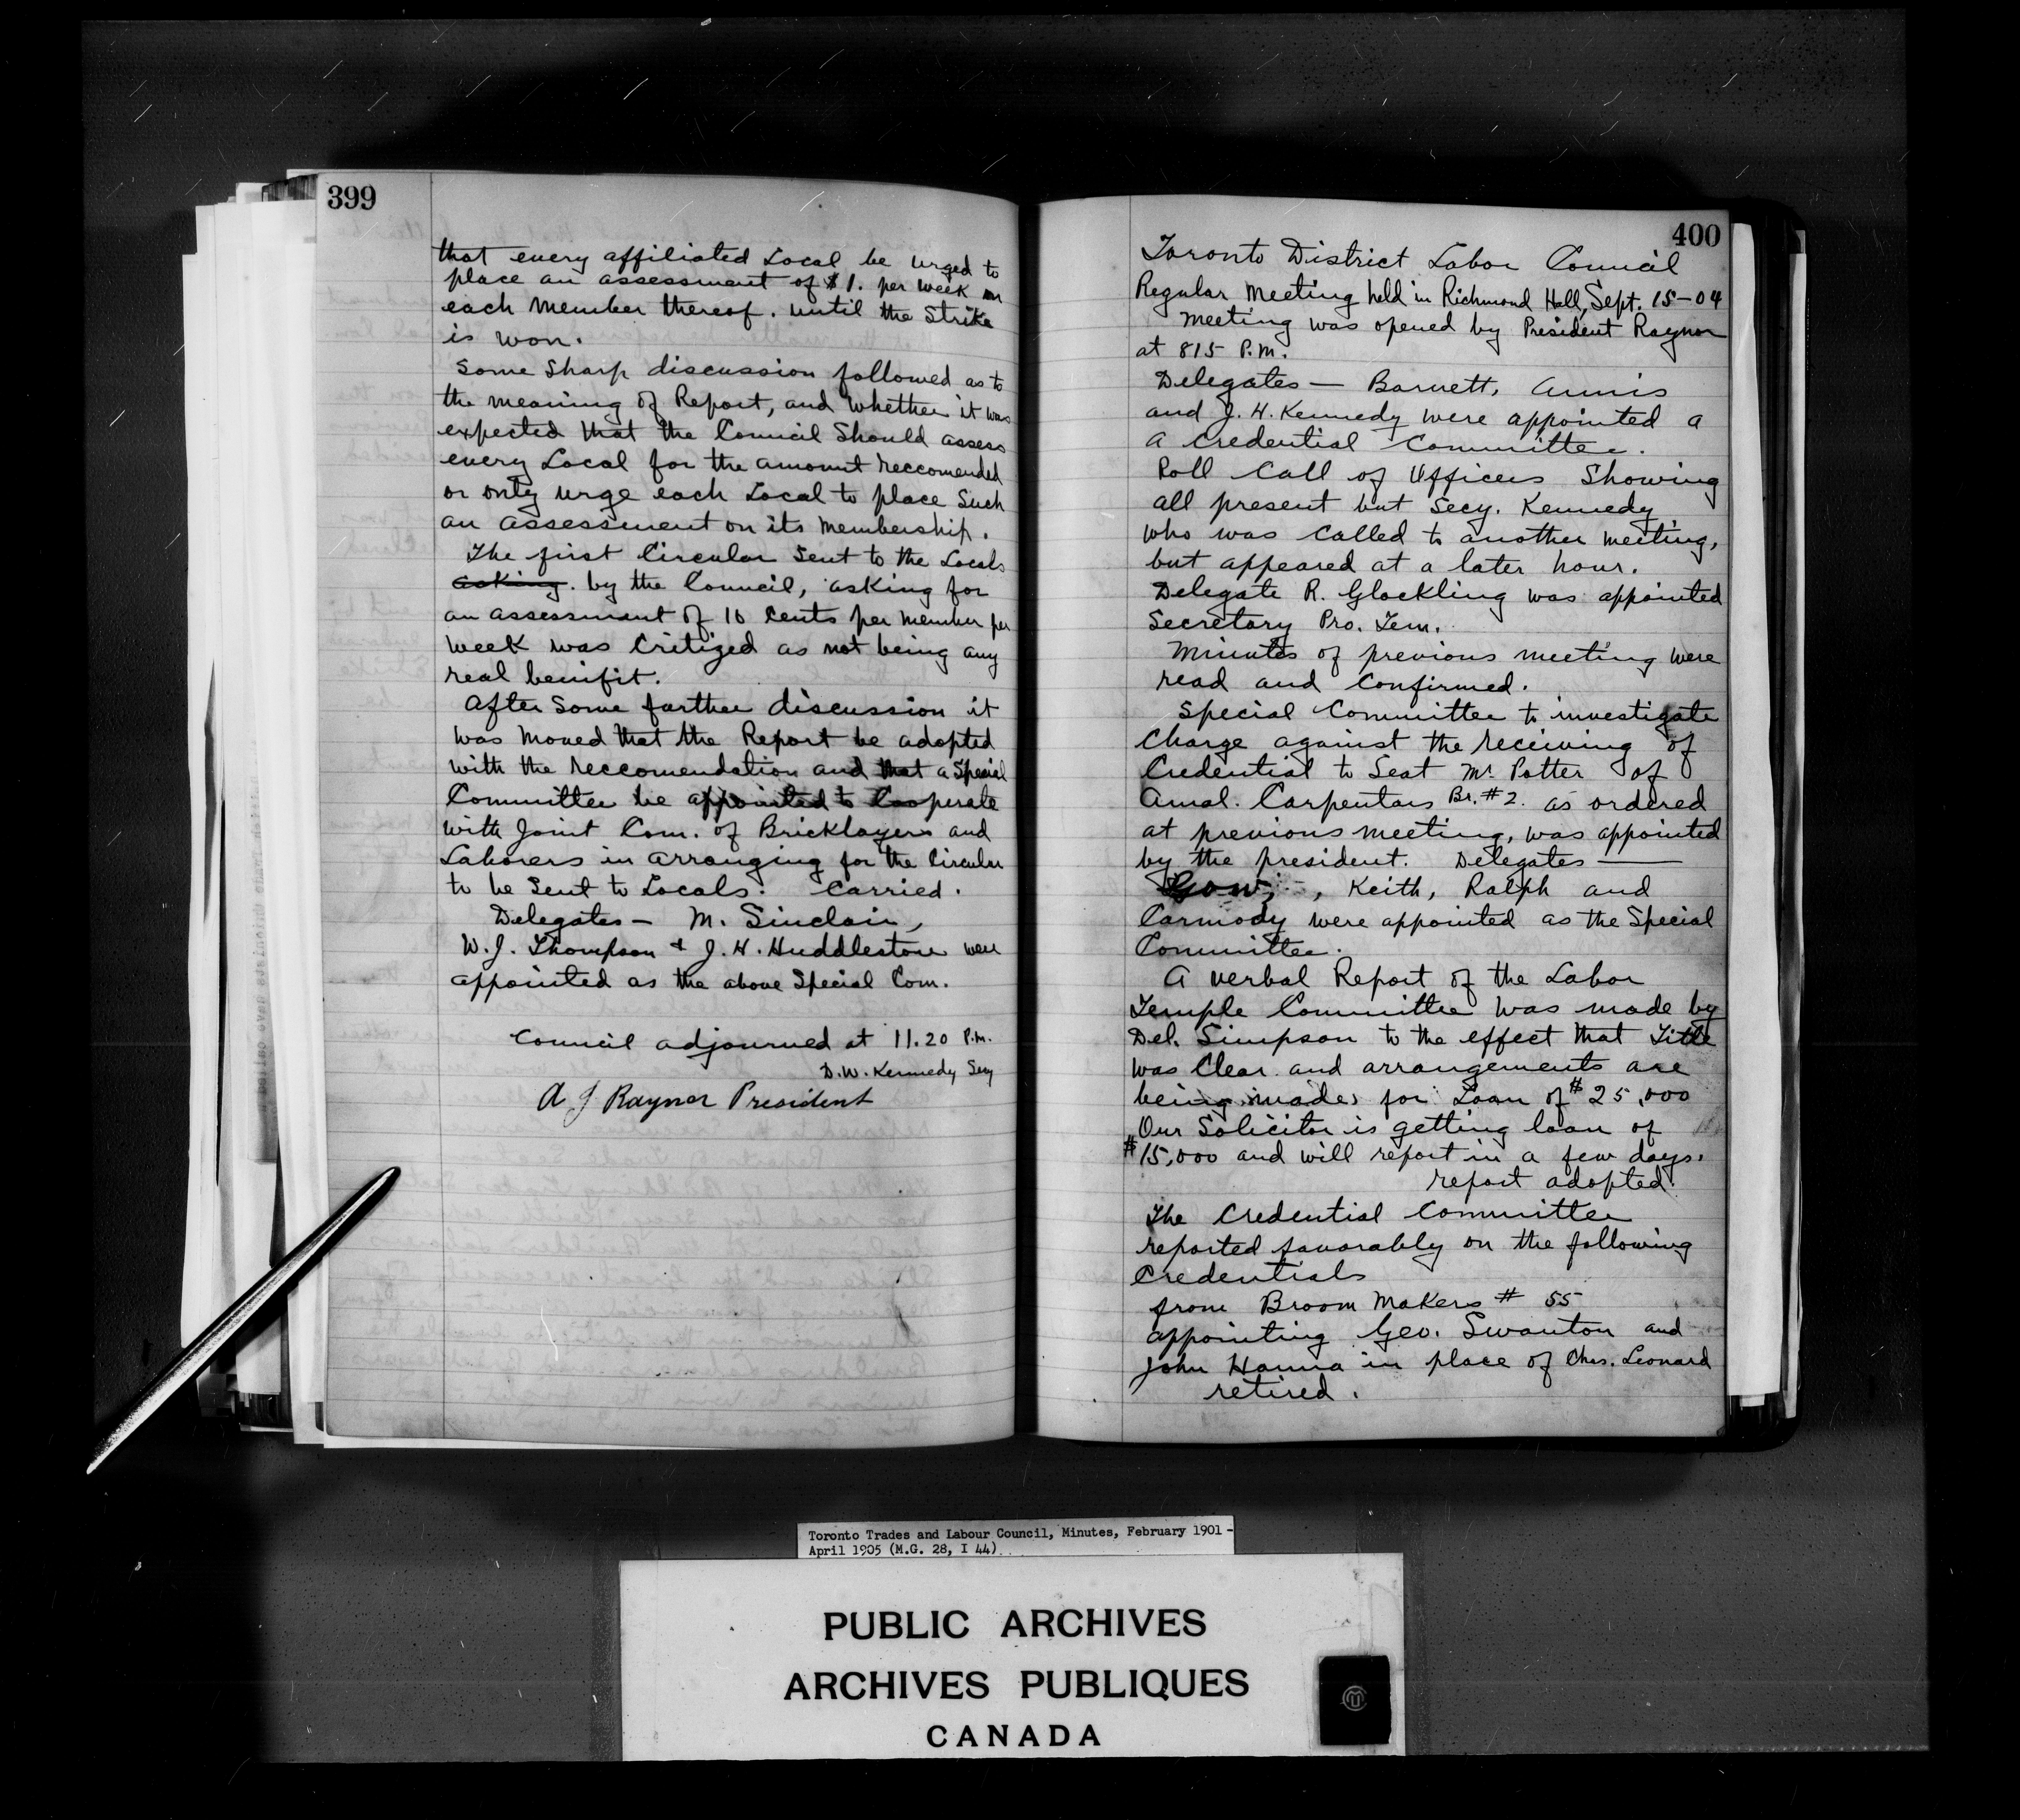 399
that every affiliated Local be urged to
place an assessment of $1. per week on
each member thereof. until the Strike
is won.
Some Sharp discussion followed as to
the meaning of Report, and whether it was
expected that the Council Should assess
every Local for the amount reccomended
or only urge each Local to place Such
an assessment on its membership.
The first Circular Sent to the Locals
asking. by the Council, asking for
an assessment of 10 Cents per member per
week was Critized as not being any
real benifit.
After Some further discussion it
was moved that the Report be adopted
with the reccomendation and that a Special
Committee be appointed to Cooperate
with Joint Com. of Bricklayers and
Laborers in arranging for the Circular
to be Sent to Locals. Carried.
Delegates — M. Sinclair,
W.J. Thompson + J.H. Huddlestone were
appointed as the above Special Com.
Council adjourned at 11.20 P.m.
D.W. Kennedy Secy
A J Raynor President
400
Toronto District Labor Council
Regular Meeting held in Richmond Hall, Sept. 15-04
Meeting was opened by President Raynor
at 815 P.M.
Delegates — Barnett, Annis
and J.H. Kennedy were appointed a
a credential Committee.
Roll Call of Officers Showing
all present but Secy. Kennedy
who was called to another meeting,
but appeared at a later hour.
Delegate R. Glockling was appointed
Secretary Pro. Tem.
Minutes of previous meeting were
read and Confirmed.
Special Committee to investigate
Charge against the receiving of
Credential to Seat Mr Potter of
Amal. Carpentars Br. #2. as ordered
at previous meeting, was appointed
by the president. Delegates —
Gow, , Keith, Ralph and
Carmody were appointed as the Special
Committee.
A verbal Report of the Labor
Temple Committee was made by
Del. Simpson to the effect that Title
was Clear and arrangements are
being made for Loan of $25,000
Our Solicitor is getting loan of
$15,000 and will report in a few days.
report adopted.
The Credential Committee
reported favorably on the following
Credentials
from Broom Makers # 55
appointing Geo. Swanton and
John Hanna in place of Chas. Leonard
retired.
Toronto Trades and Labour Council, Minutes, February 1901 -
April 1905 (M.G. 28, I 44)
PUBLIC ARCHIVES
ARCHIVES PUBLIQUES
CANADA